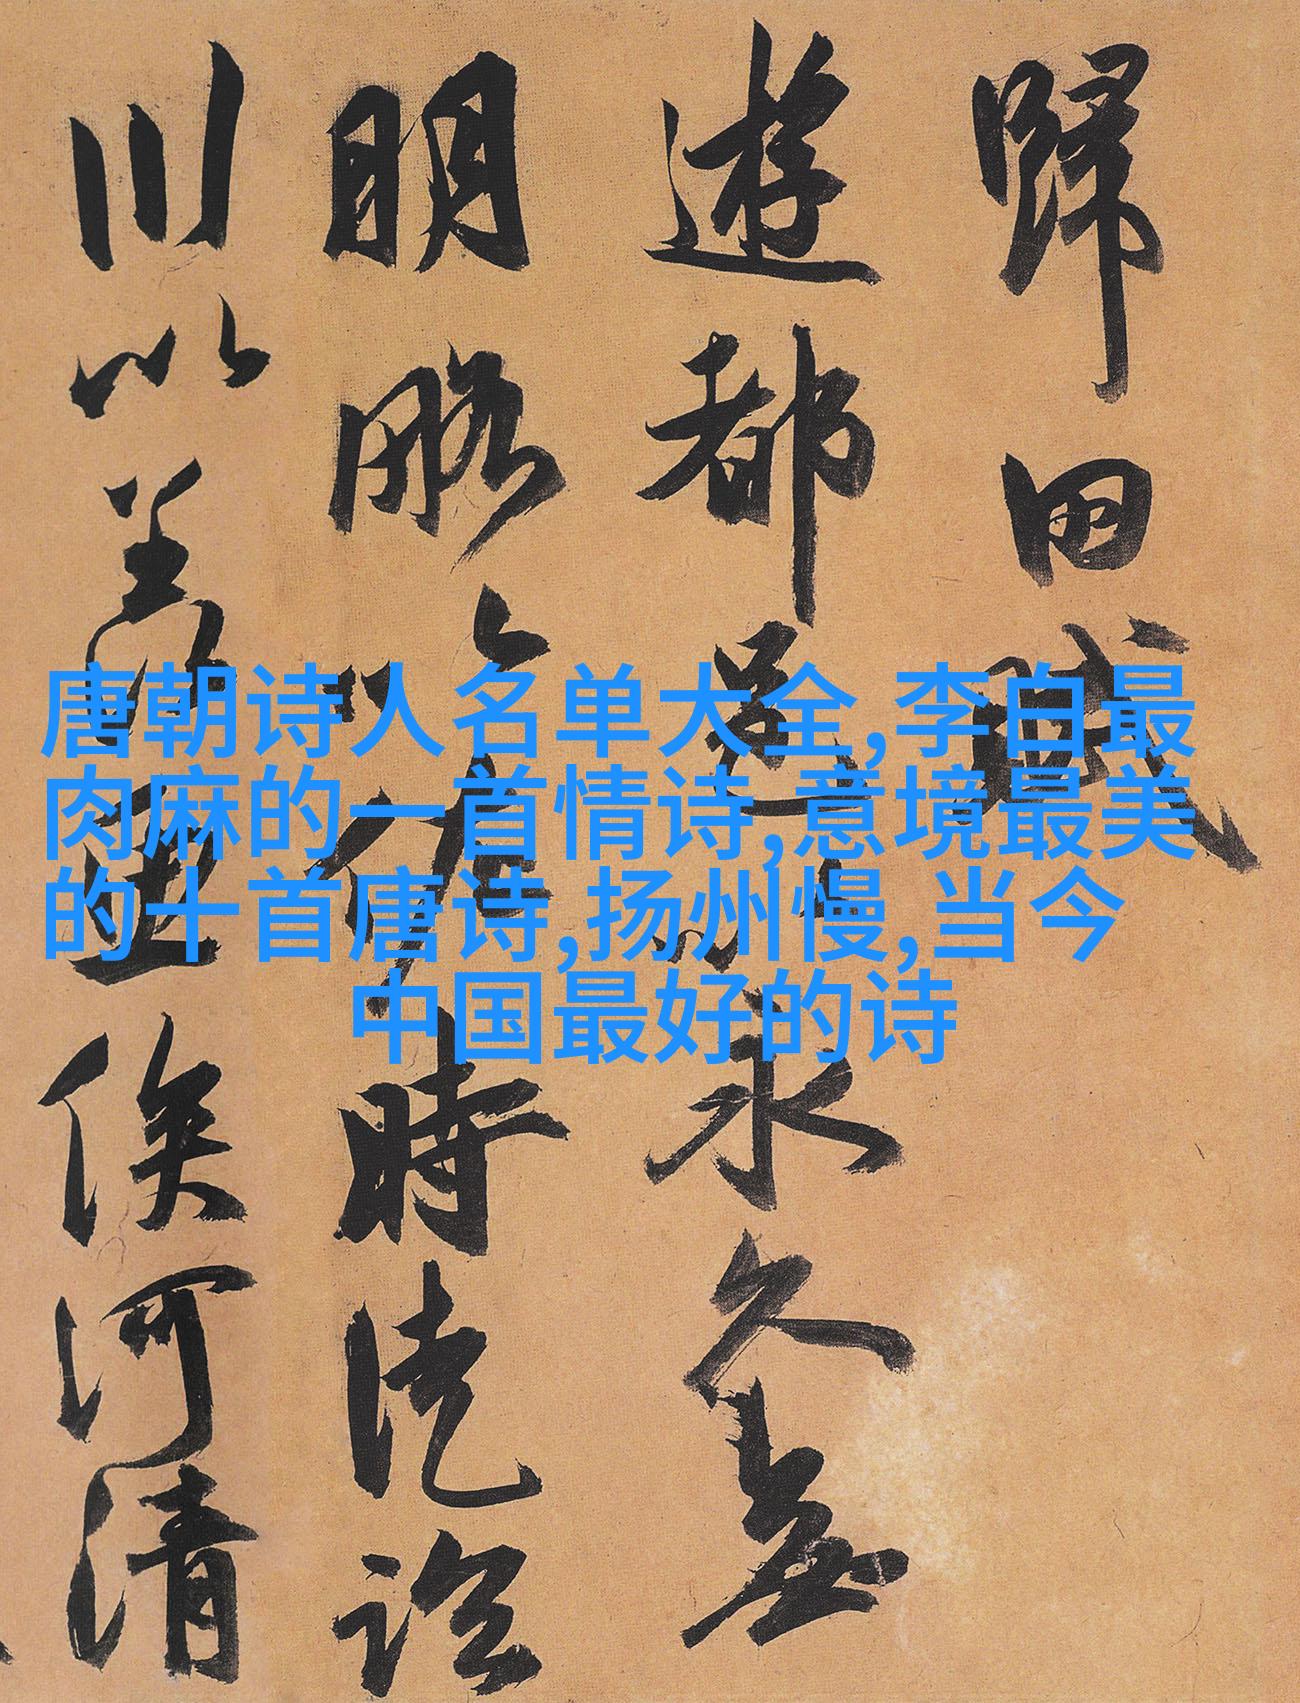 歸田賦
遊都邑以永久無
明略以佐時徒臨
川以羨魚俟河清
唐朝诗人名单大全,李白最
肉麻的一首情诗,意境最美
的十首唐诗,扬州慢,当今
中国最好的诗